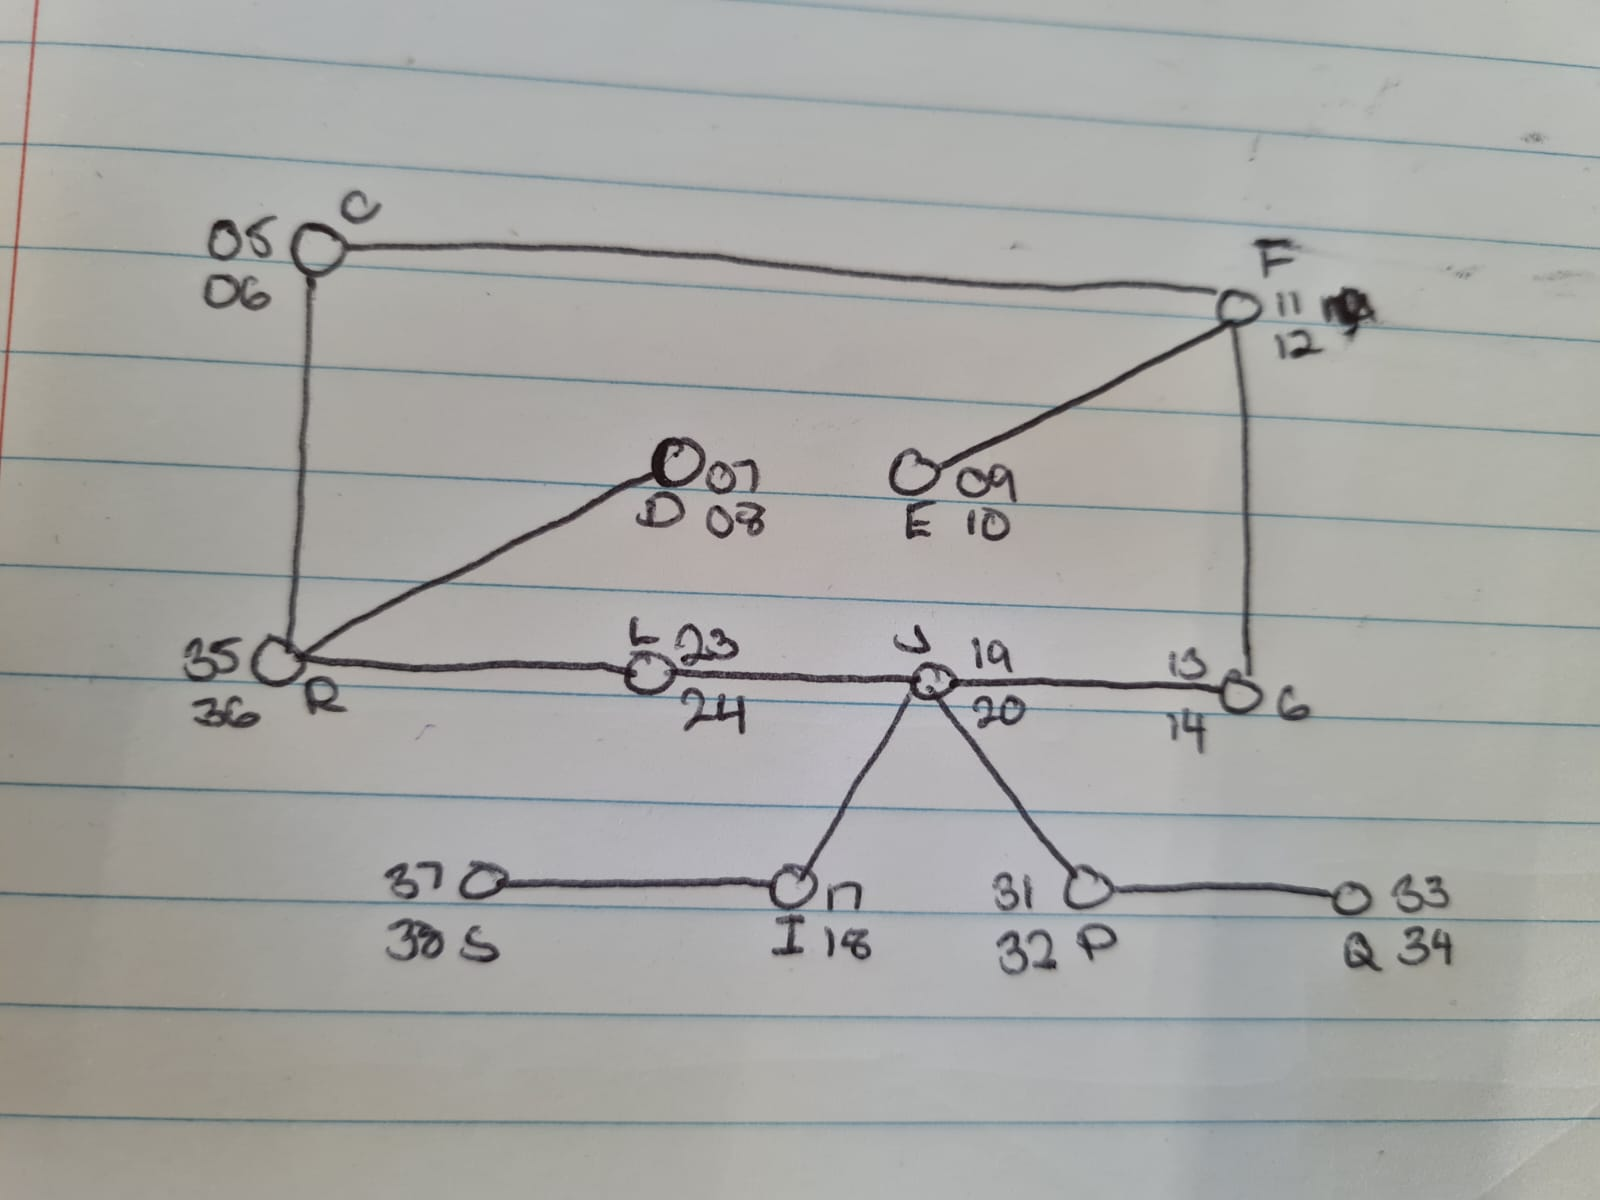 C
05
06
F
11
12
07
D 08
09
E 10
L 23
24
J 19
20
13
14
G
35
36 R
37
38 S
17
I 18
31
32 P
33
Q 34